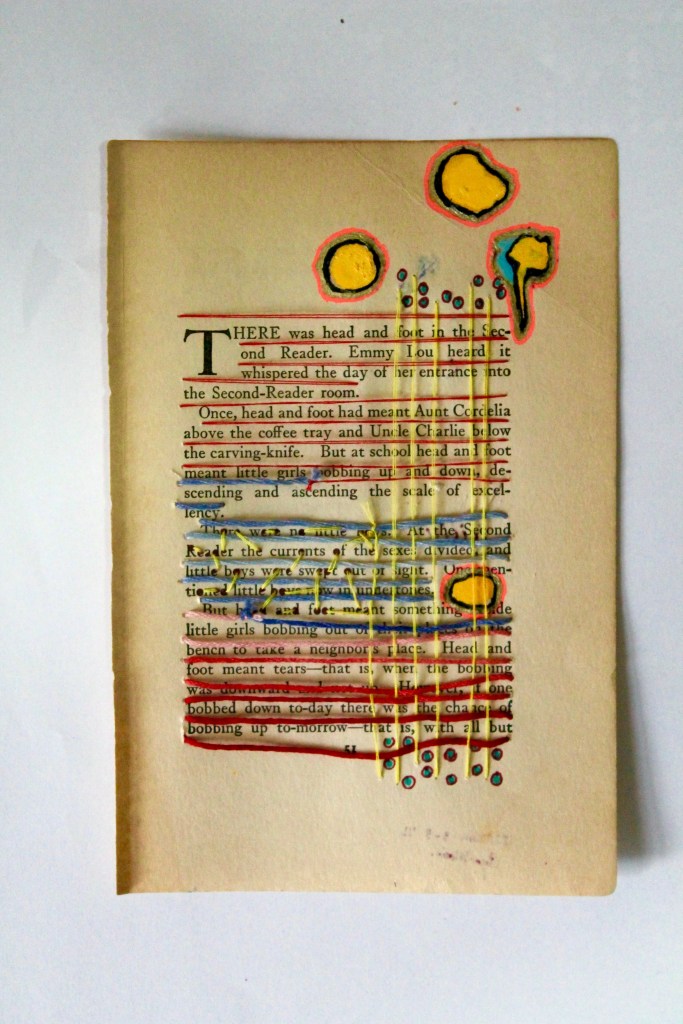 THERE was head and foot in the Sec-
ond Reader. Emmy Lou heard it
whispered the day of her entrance into
the Second-Reader room.
Once, head and foot had meant Aunt Cordelia
above the coffee tray and Uncle Charlie below
the carving-knife. But at school head and foot
meant little girls bobbing up and down, de-
scending and ascending the scale of excel-
lency.
There were no little boys. At the Second
Reader the currents of the sexes divided, and
little boys were swept out of sight. One men-
tioned little boys now in undertones.
But head and foot meant something
little girls bobbing out of their places
bench to take a neighbor's place. Head and
foot meant tears—that is, when the bobbing
was downward and not up. However, if one
bobbed down to-day there was the chance of
bobbing up to-morrow—that is, with all but
51